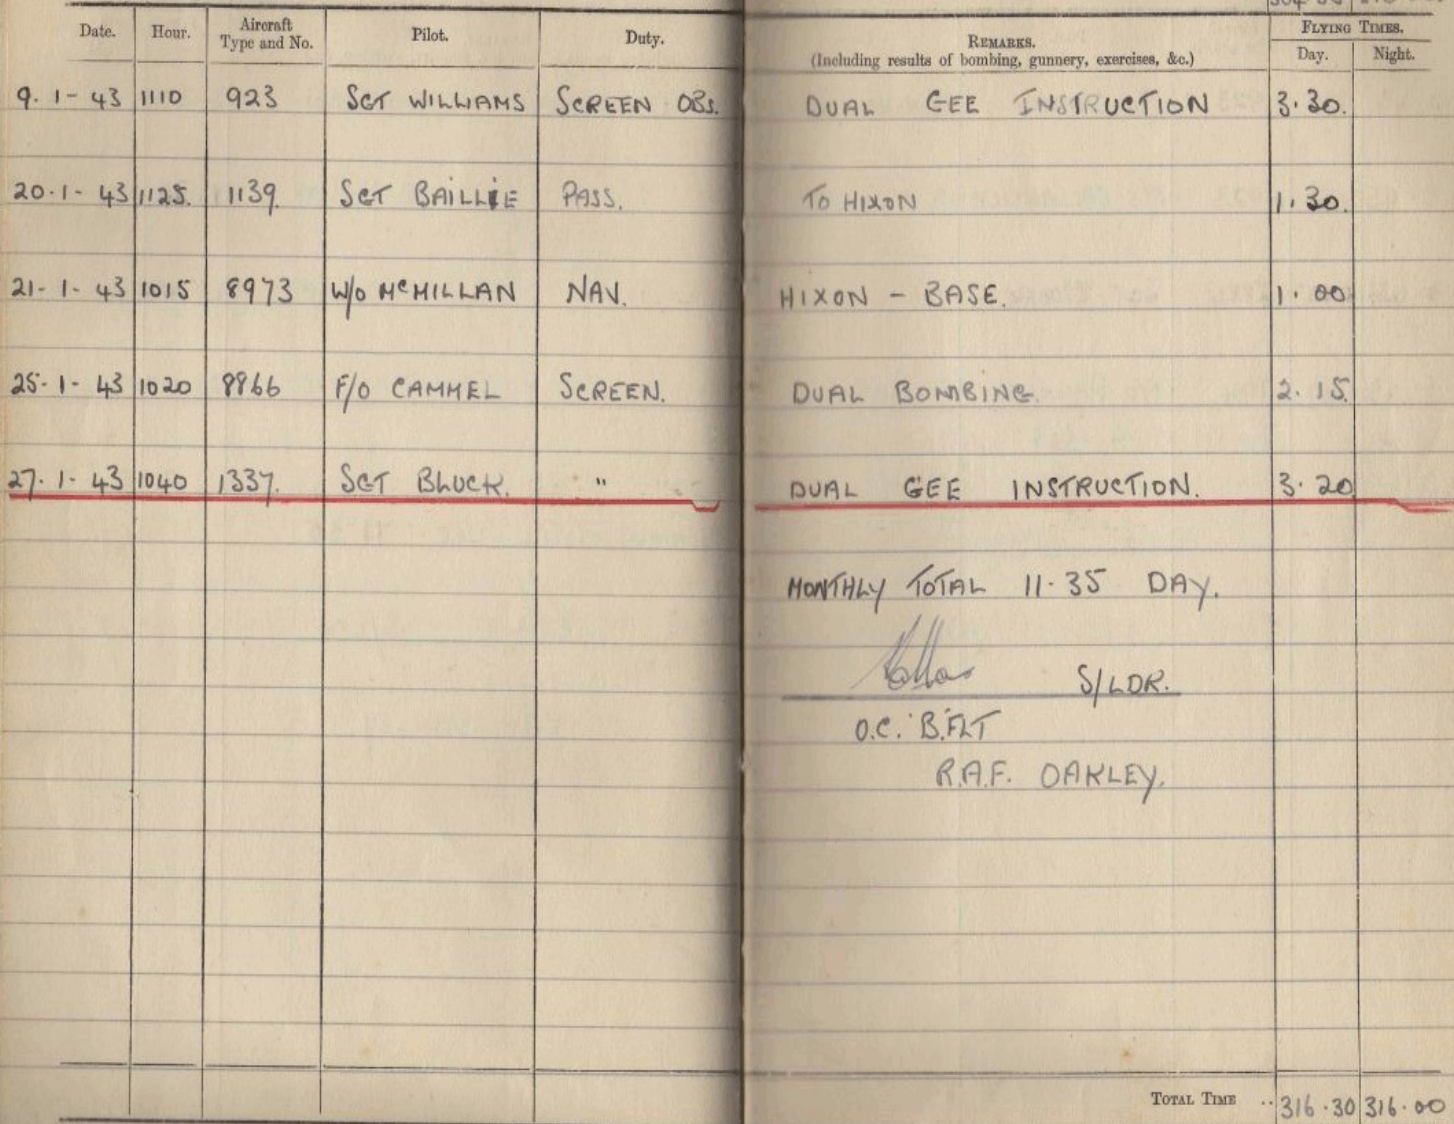 Date. Hour. Aircraft Type and No. Pilot. Duty. REMARKS. (Including results of bombing, gunnery, exercises, &c.) FLYING TIMES. Day. Night.
9. 1 - 43 1110 923 SGT WILLIAMS SCREEN OBS. DUAL GEE INSTRUCTION 3.30.
20.1 - 43 1125. 1139. SGT BAILLIE PASS. TO HIXON 1.30.
21 - 1 - 43 1015 8973 W/O McMILLAN NAV. HIXON - BASE. 1.00
25 - 1 - 43 1020 8866 F/O CAMMEL SCREEN. DUAL BOMBING. 2.15.
27. 1 - 43 1040 1337. SGT BLUCK. " DUAL GEE INSTRUCTION. 3.20
MONTHLY TOTAL 11.35 DAY.
S/LDR.
O.C. B.FLT
R.A.F. OAKLEY.
TOTAL TIME .. 316.30 316.00